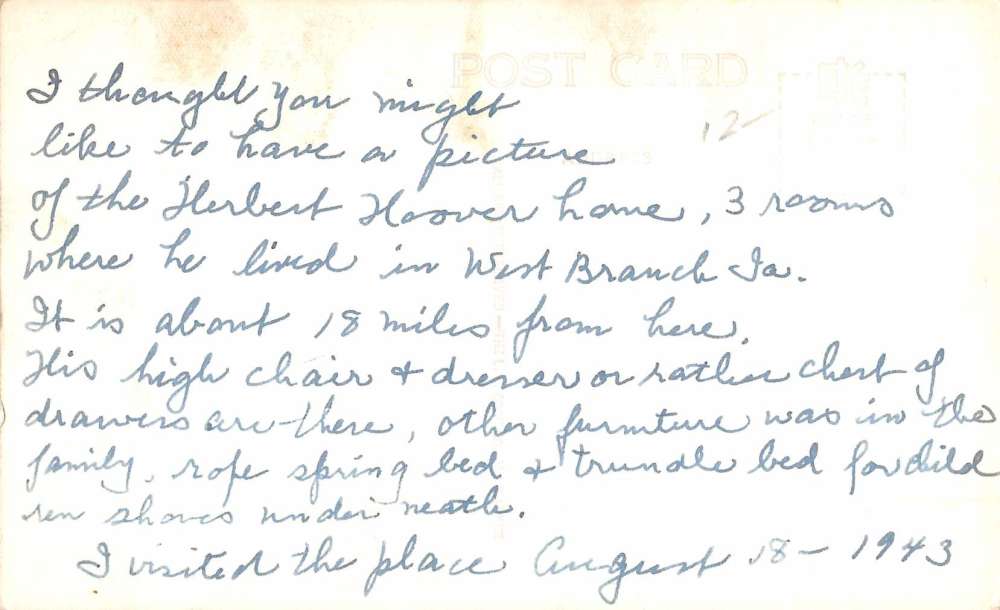 POST CARD
I thought you might
12-
like to have a picture
ADDRESS
of the Herbert Hoover home, 3 rooms
where he lived in West Branch Ia.
It is about 18 miles from here.
His high chair & dresser or rather chest of
drawers are there, other furniture was in the
family, rope spring bed & trundle bed for child
ren shoves under neath.
I visited the place August 18 - 1943